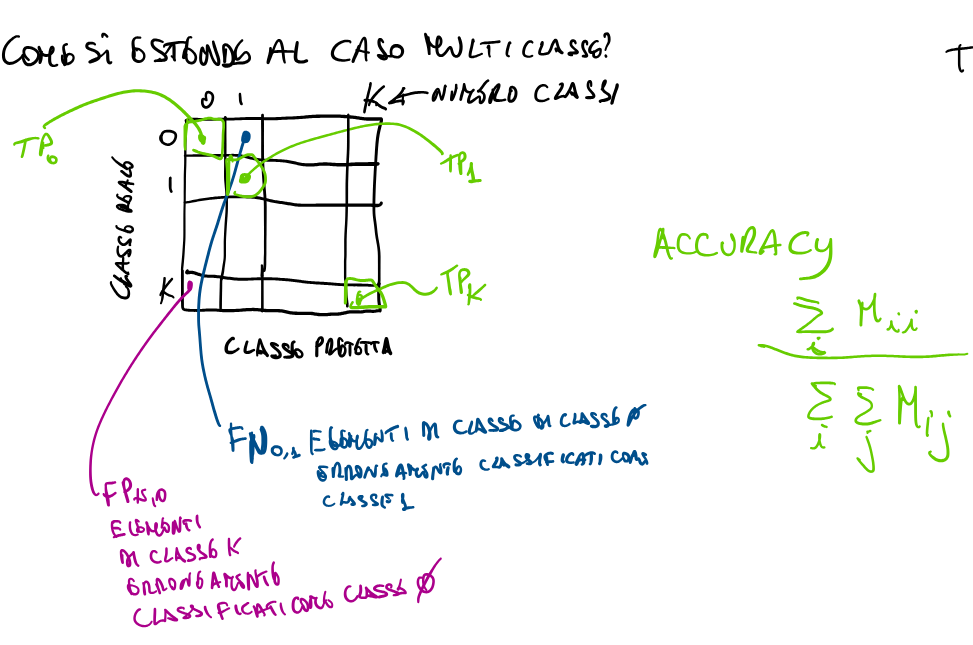 COME SI ESTENDE AL CASO MULTICLASSE?
T
0 1 K ← NUMERO CLASSI
TP₀
0
TP₁
1
CLASSE REALE
K
TP_K
CLASSE PREDETTA
ACCURACY
Σ_i M_ii
Σ_i Σ_j M_ij
FN₀,₁ ELEMENTI DI CLASSE DI CLASSE Ø
ERRONEAMENTE CLASSIFICATI COME
CLASSE 1
FP_K,0
ELEMENTI
DI CLASSE K
ERRONEAMENTE
CLASSIFICATI COME CLASSE Ø